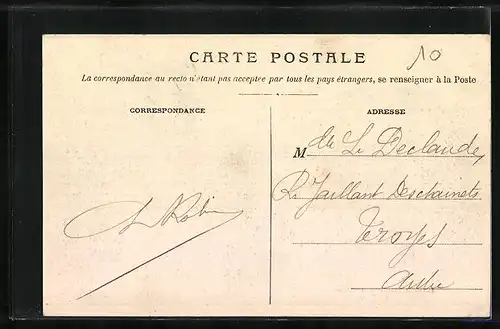 10
CARTE POSTALE
La correspondance au recto n'étant pas acceptée par tous les pays étrangers, se renseigner à la Poste
CORRESPONDANCE
ADRESSE
M Declaude
R. Jaillant Deschainets
Troyes
Aube